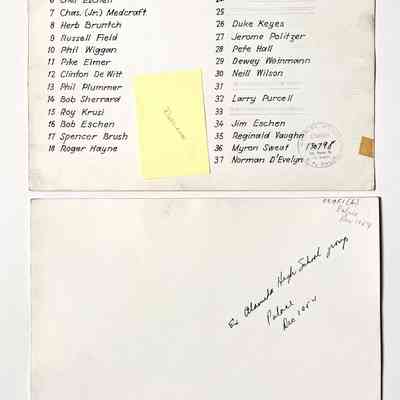 6 Chet Eschen
7 Chas. (Jr.) Medcraft
8 Herb Bruntch
9 Russell Field
10 Phil Wiggan
11 Pike Elmer
12 Clinton De Witt
13 Phil Plummer
14 Bob Sherrard
15 Roy Krusi
16 Bob Eschen
17 Spencer Brush
18 Roger Hayne
25
26 Duke Keyes
27 Jerome Politzer
28 Pete Hall
29 Dewey Weinmann
30 Neill Wilson
31
32 Larry Purcell
33
34 Jim Eschen
35 Reginald Vaughn
36 Myron Sweat
37 Norman D'Evelyn
130798
Palace
Dec 1954
Ex Alameda High School group
Palace
Dec 1954